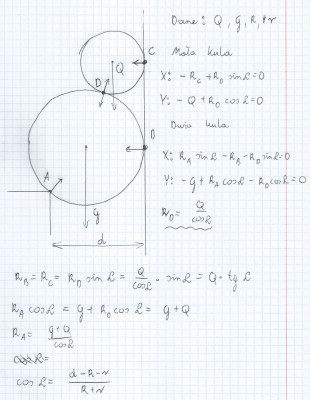 Dane: Q, g, R, r
C
Mała kula
Q
X: -Rc + RD sinL = 0
D
Y: -Q + RD cosL = 0
Duża kula
B
X: RA sinL - RB - RD sinL = 0
A
Y: -g + RA cosL - RD cosL = 0
g
RD = Q/cosL
d
RB = RC = RD sinL = Q/cosL · sinL = Q · tgL
RA cosL = g + RD cosL = g + Q
RA = g+Q/cosL
cosL = d-R-r/R+r